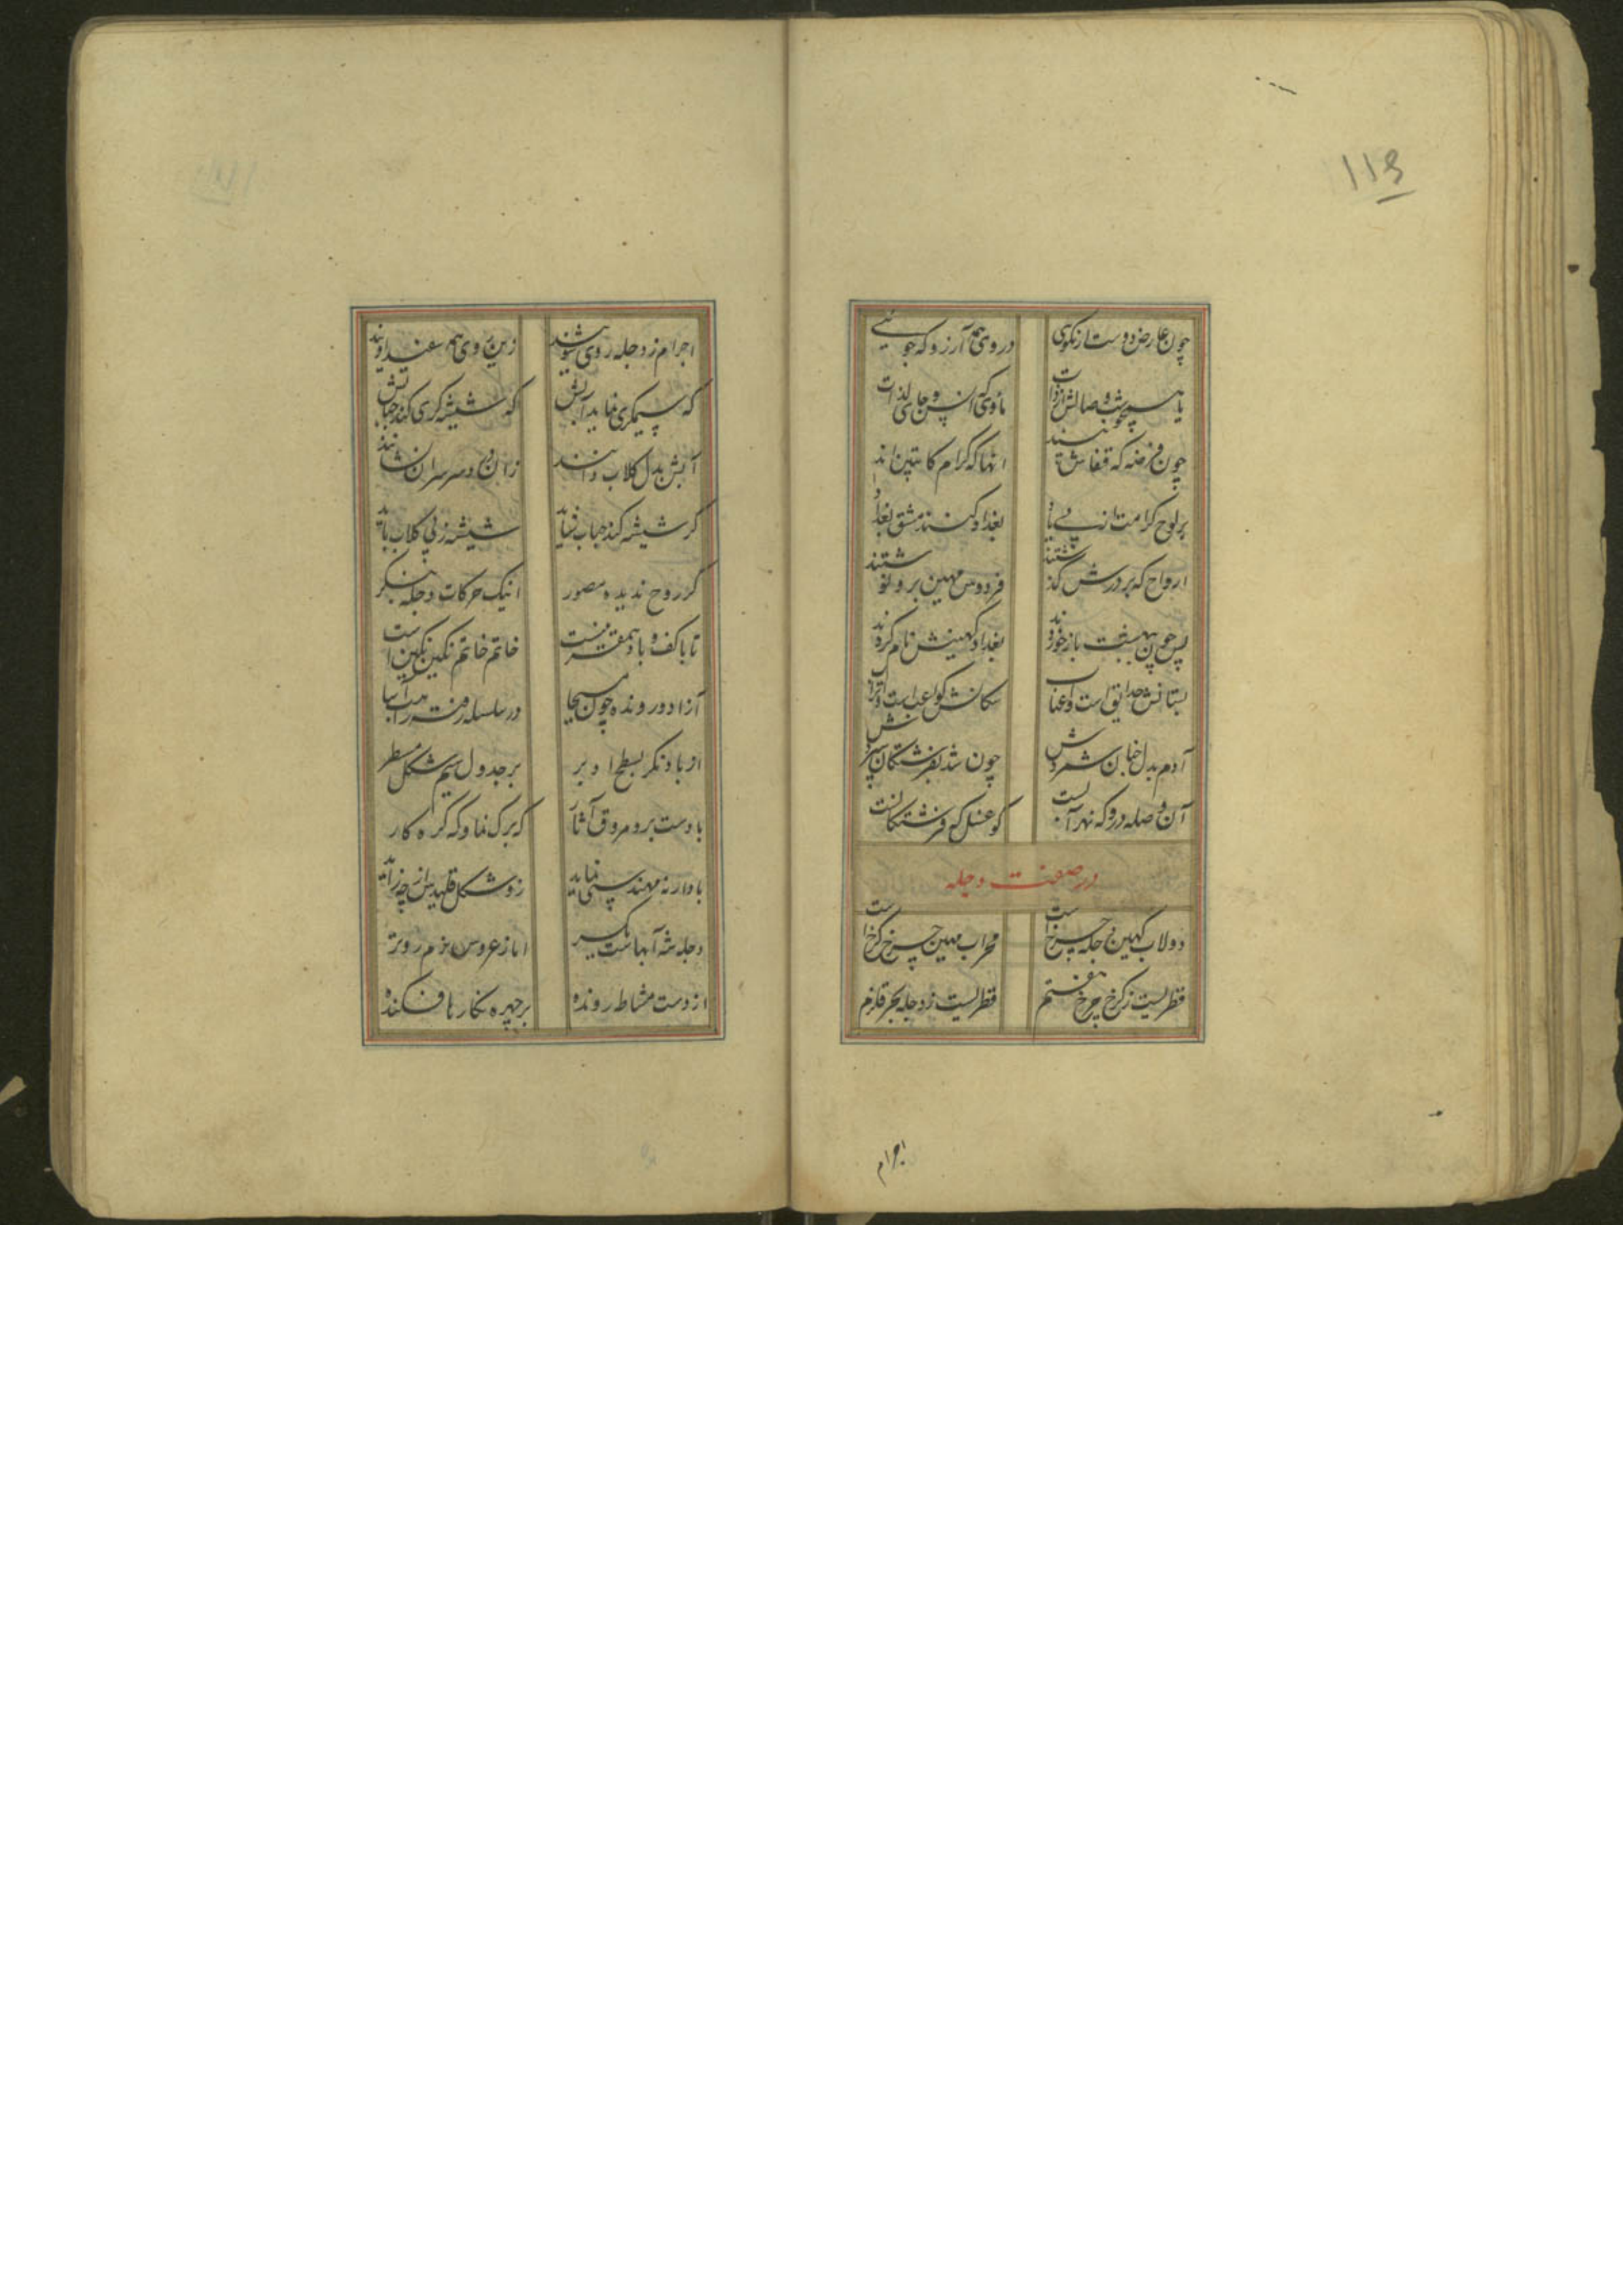 ۱۱۶
چون عارض دوست از نکوی
در وی همه آرزو که جویی
یا هست چو شب وصالش از ذات
ماوی که انس و جای لذات
چون فرضه که قفاش
انها که کرام کاتبین اند
بر لوح کرامت از پی یاد
بغداد کنند مشق بغداد
ارواح که بر درش گذشتند
فردوس مهین برو نوشتند
پس چون ببهشت باز خوردند
بغداد کهینش نام کردند
بستانش حدایق است و اعناب
سکانش کواعب است و اتراب
آدم بدل جنان شمردش
چون شد بفرشتگان سپردش
آن وصله درو که نهر آبست
کو غسل که فرشتگانست
در صفت دجله
دولاب کهین دجله چرخ است
محراب مهین چرخ کرخ است
قطریست ز کرخ چرخ هفتم
قطریست ز دجله بحر قلزم
اجرام
اجرام ز دجله روی شویند
زین روی همه
که سیمگری نماید آبش
که شیشه گری کند حبابش
آبش بدل گلاب دانند
زان در سر سران فشانند
گر شیشه کند حباب شاید
شیشه ز پی گلاب باید
گر روح ندیده مصور
اینک حرکات دجله بنگر
تا با کف و باد همقرینست
خاتم خاتم نگین نگین است
آزاد و رونده چون مسیحا
در سلسله رفته راهب آسا
از باد نگر بسطح او بر
بر جدول سیم شکل مسطر
بادست برو مروق آثار
که برگ نما و که گره کار
باد ار نه مهندسی نماید
زو شکل قلیدس از چه زاید
دجله شه آبهاست یکسر
اما ز عروس بزم روتر
از دست مشاطه رونده
بر چهره نگارها فکنده